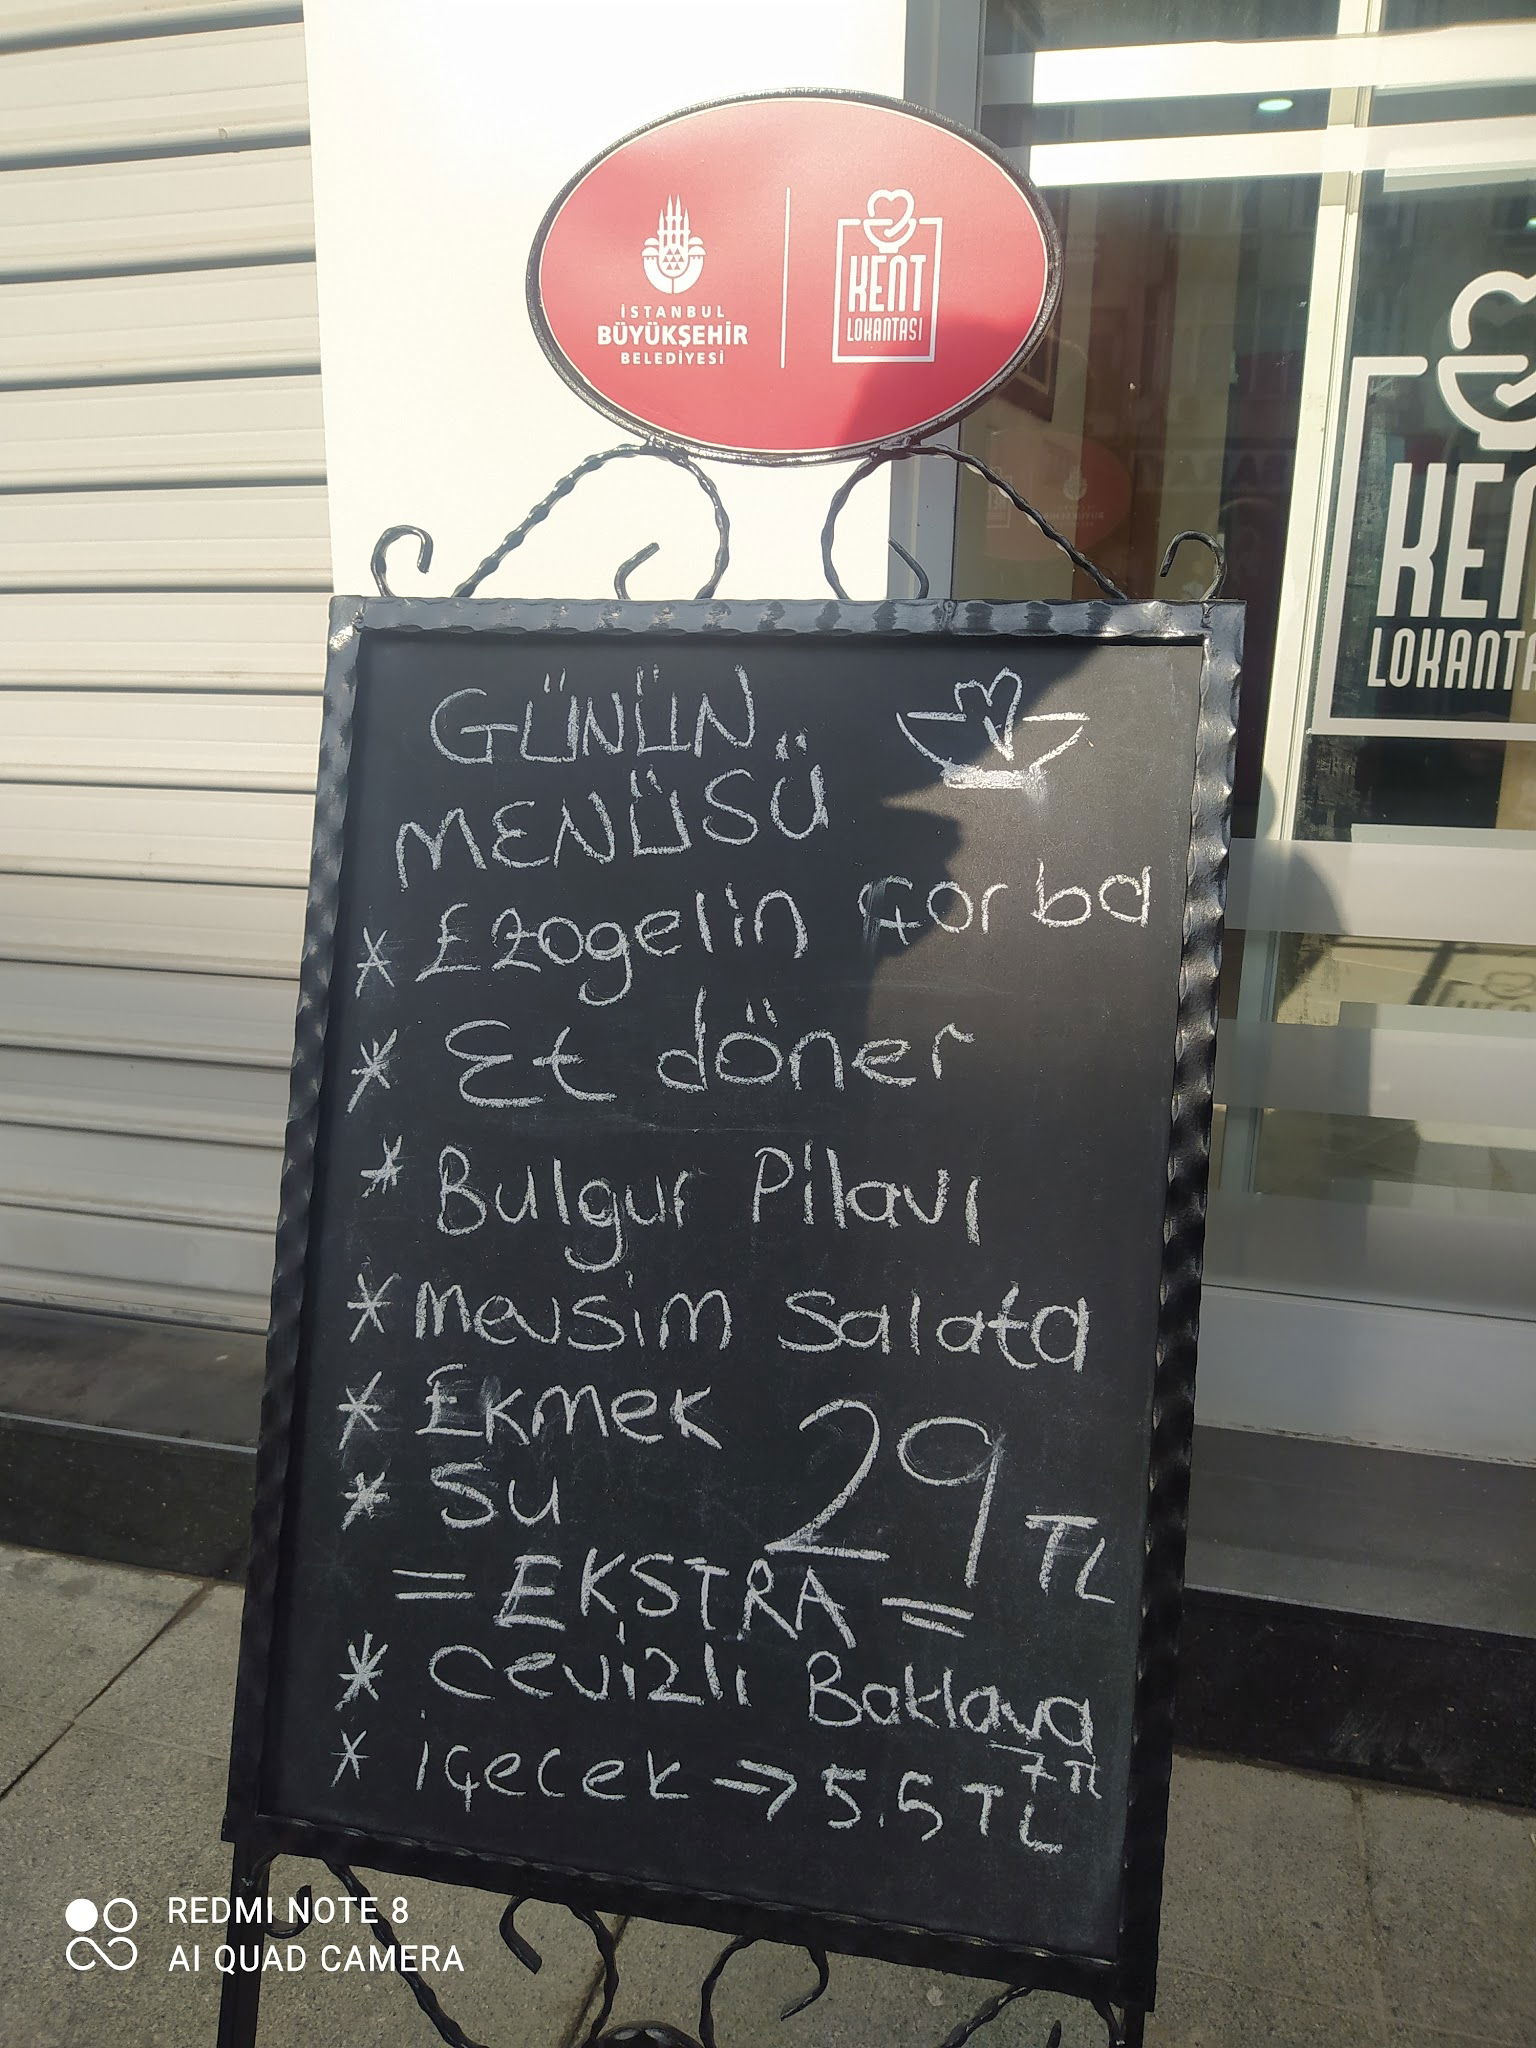 İSTANBUL
BÜYÜKŞEHİR
BELEDİYESİ
KENT
LOKANTASI
KEN
LOKANTA
GÜNÜN
MENÜSÜ
* Ezogelin çorba
* Et döner
* Bulgur Pilavı
* Mevsim Salata
* Ekmek
* Su
29 TL
= EKSTRA =
* Cevizli Baklava
7 TL
* içecek → 5.5 TL
REDMI NOTE 8
AI QUAD CAMERA